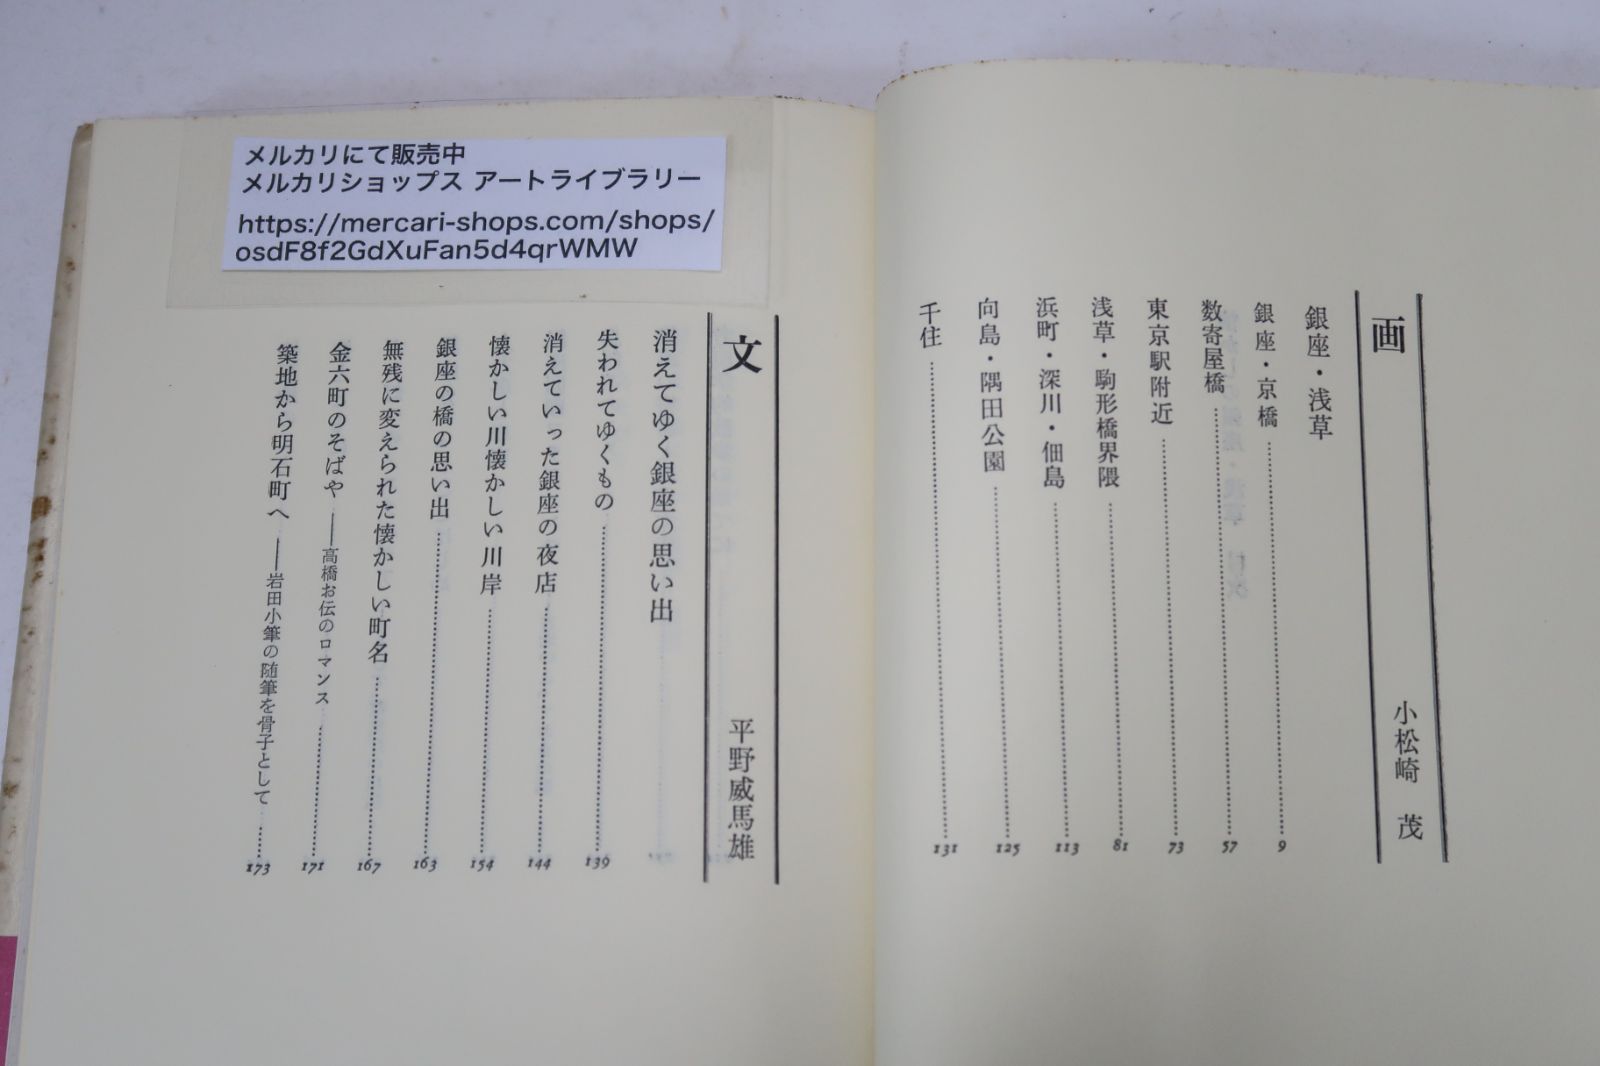 メルカリにて販売中
メルカリショップス アートライブラリー
https://mercari-shops.com/shops/
osdF8f2GdXuFan5d4qrWMW
画 小松崎 茂
銀座・浅草
銀座・京橋……9
数寄屋橋……57
東京駅附近……73
浅草・駒形橋界隈……81
浜町・深川・佃島……113
向島・隅田公園……125
千住……131
文 平野威馬雄
消えてゆく銀座の思い出
失われてゆくもの……139
消えていった銀座の夜店……144
懐かしい川懐かしい川岸……154
銀座の橋の思い出……163
無残に変えられた懐かしい町名……167
金六町のそばや——高橋お伝のロマンス……171
築地から明石町へ——岩田小筆の随筆を骨子として……173